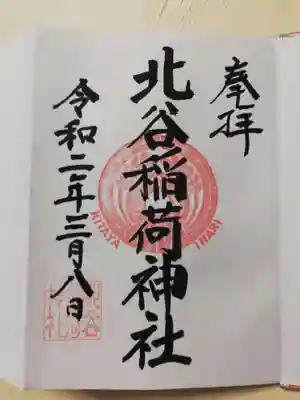 奉拝
北谷稲荷神社
令和二年三月八日
KITAYA INARI